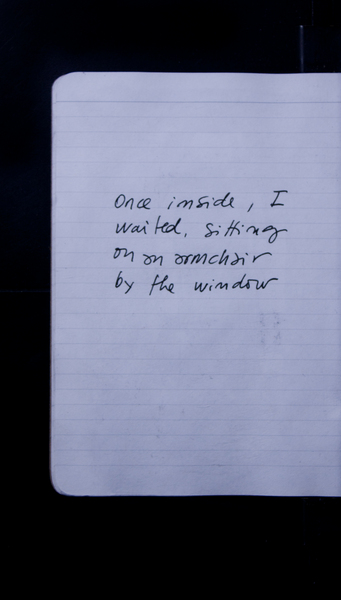 Once inside, I
waited, sitting
on an armchair
by the window